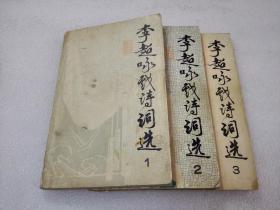 李超咏戏诗词选
1
李超咏戏诗词选
2
李超咏戏诗词选
3